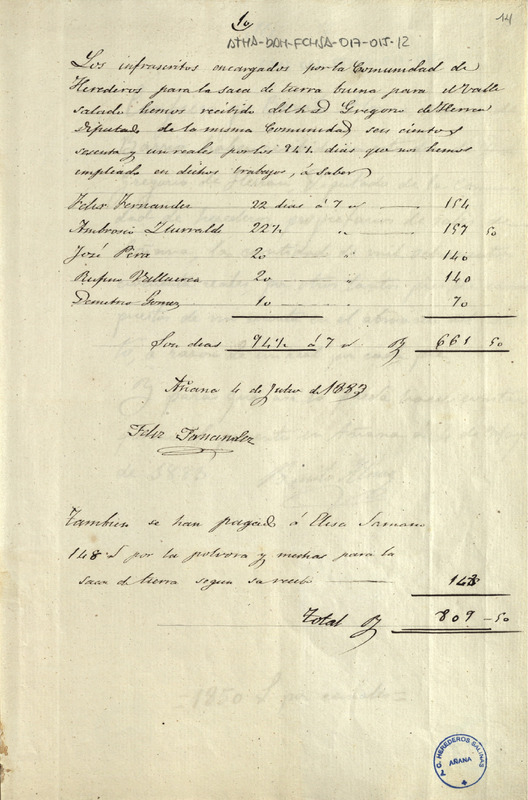 10
14
ATHA-DAH-FCHSA-017-015-12
Los infrascritos encargados por la Comunidad de
Herederos para la saca de tierra buena para el Valle
salado hemos recibido del Sr D Gregorio de Herran
Diputado de la misma Comunidad seis cientos
sesenta y un reales por los 94½ dias que nos hemos
empleado en dichos trabajos, á saber
Felix Fernandez 22 dias á 7 rs 154
Ambrosio Iturralde 22½ " 157 50
José Pera 20 " 140
Rufino Villueva 20 " 140
Demetrio Gomez 10 70
Son dias 94½ á 7 rs R 661 50
Añana 4 de Julio de 1883
Felix Fernandez
Tambien se han pagado á Elisa Samano
148 R por la polvora y mechas para la
saca de tierra segun su recibo 148
Total R 809 50
C. HEREDEROS SALINAS
AÑANA